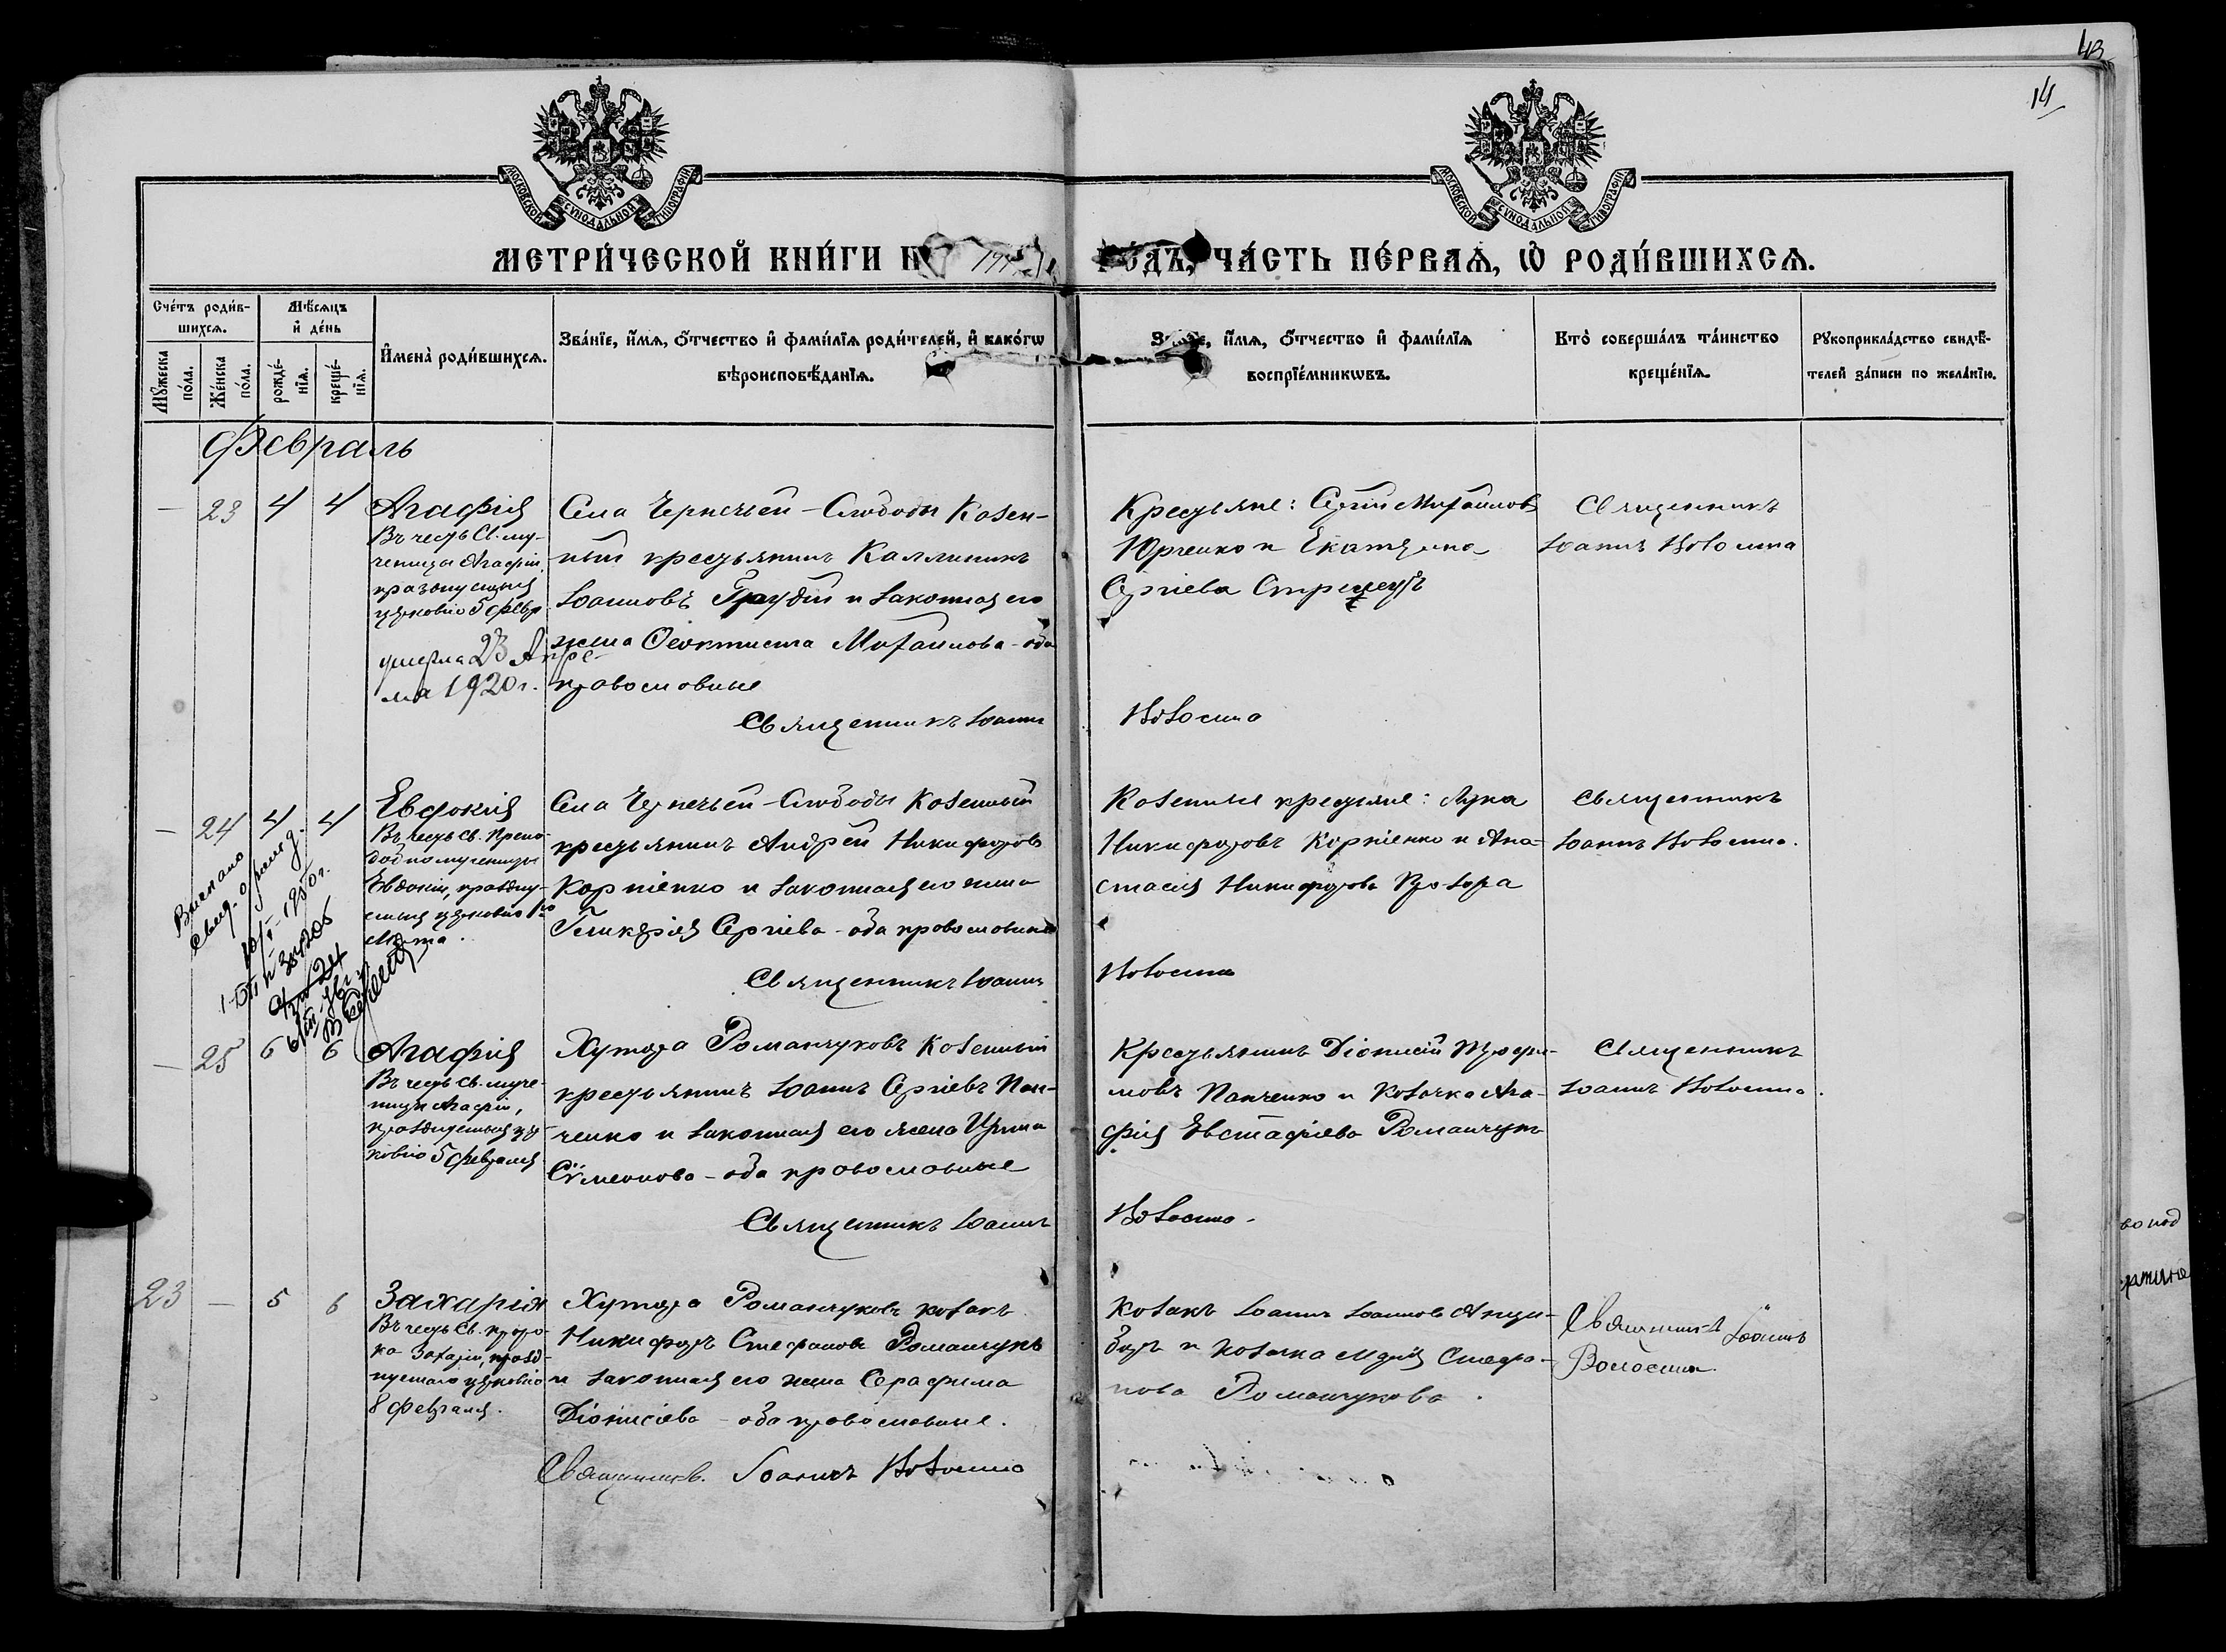 43
14
МОСКОВСКОЙ СУНОДАЛЬНОЙ ТИПОГРАФІИ
МОСКОВСКОЙ СУНОДАЛЬНОЙ ТИПОГРАФІИ
МЕТРИ́ЧЕСКОЙ КНИ́ГИ Н
ГО́ДЪ, ЧА́СТЬ ПЕ́РВАЯ, Ѡ РОДИ́ВШИХСЯ.
Сче́тъ роди́в-
шихся.
Мѣ́сяцъ
и де́нь
Мꙋ́жеска
по́ла.
Же́нска
по́ла.
рожде́-
нїя.
креще́-
нїя.
Имена̀ роди́вшихся.
Зва́нїе, и́мя, ѻ́тчество и фами́лїя роди́телей, и како́гѡ
вѣроисповѣ́данїя.
Зва́нїе, и́мя, ѻ́тчество и фами́лїя
воспрїе́мникѡвъ.
Кто̀ соверша́лъ та́инство
креще́нїя.
Рꙋкоприкла́дство свидѣ́-
телей за́писи по жела́нїю.
Февраль
— 23 4 4
Агафія
Въ честь Св. му-
ченицы Агафіи,
празднуемыя
церковію 5 февр.
умерла 23 Апре-
ля 1920 г.
Села Чернечьей-Слободы Козен-
ный крестьянинъ Каллиникъ
Іоанновъ и законная его
жена Феоктиста Михайлова - оба
православные
Священникъ Іоаннъ
Крестьяне: Сергій Михайловъ
Юрченко и Екатерина
Сергіева Стрепетъ
Волосина
Священникъ
Іоаннъ Волосина
— 24 4 4
Евдокія
Въ честь Св. Препо-
добномученицы
Евдокіи, праздну-
емыя церковію 1го
Марта.
Выслано
свид. о рожд.
10/I-1950 г.
Села Чернечьей-Слободы Козенный
крестьянинъ Андрей Никифоровъ
Корніенко и законная его жена
Гликерія Сергіева - оба православные
Священникъ Іоаннъ
Козенные крестьяне: Лука
Никифоровъ Корніенко и Ана-
стасія Никифорова
Волосина
Священникъ
Іоаннъ Волосина.
— 25 6 6
Агафія
Въ честь Св. муче-
ницы Агафіи,
празднуемыя цер-
ковію 5 февраля
Хутора Романчуковъ Козенный
крестьянинъ Іоаннъ Сергіевъ Пан-
ченко и законная его жена Ирина
Сѵмеонова - оба православные
Священникъ Іоаннъ
Крестьянинъ Діонисій Трофи-
мовъ Панченко и Козачка Ага-
фія Евстафіева Романчукъ
Волосина.
Священникъ
Іоаннъ Волосина.
23 — 5 6
Захарія
Въ честь Св. проро-
ка Захаріи, празд-
нуемаго церковію
8 февраля.
Хутора Романчуковъ козакъ
Никифоръ Стефановъ Романчукъ
и законная его жена Серафима
Діонисіева - оба православные.
Священникъ Іоаннъ Волосина
Козакъ Іоаннъ Іоанновъ
и козачка Марія Стефа-
нова Романчукова.
Священникъ Іоаннъ
Волосина.